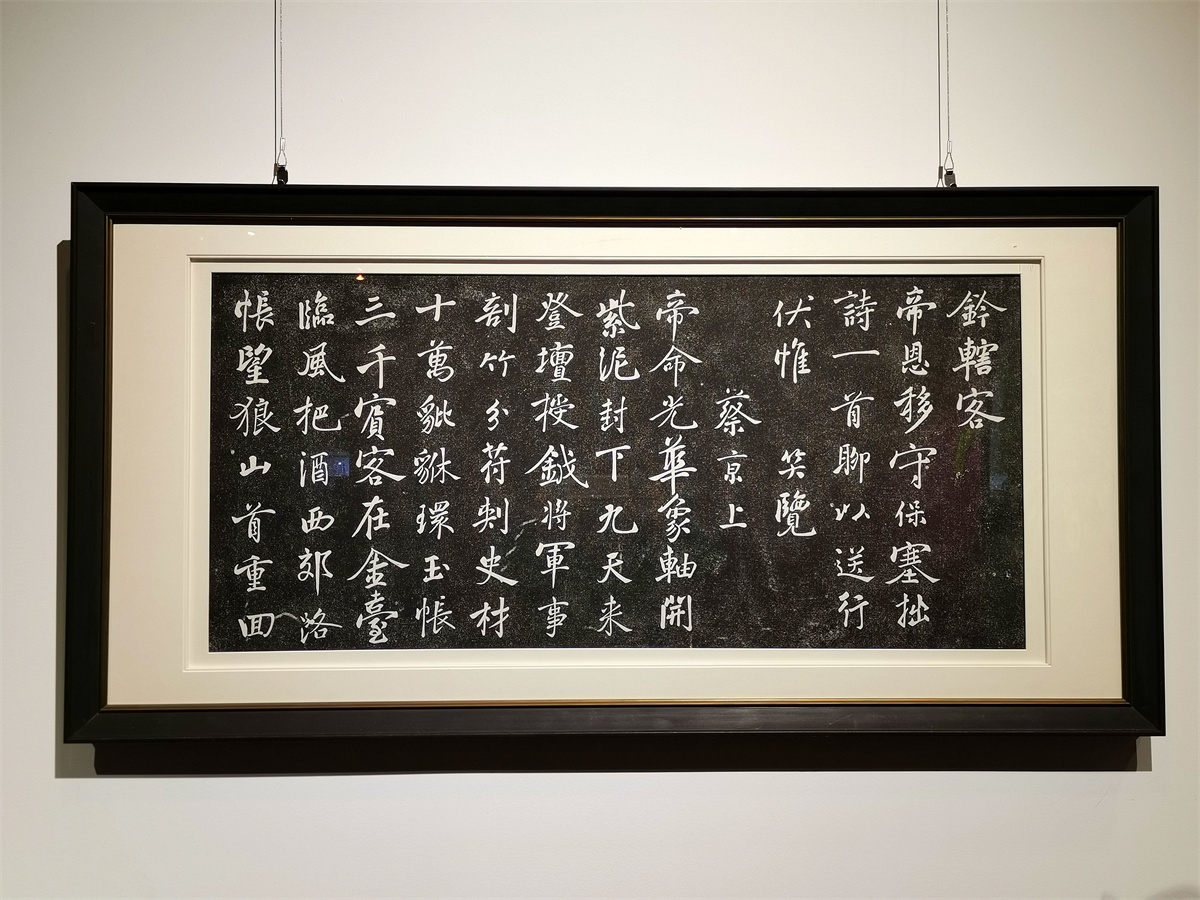 鈐轄客
帝恩移守保塞拙
詩一首聊以送行
伏惟 笑覽
蔡京上
帝命光華象軸開
紫泥封下九天来
登壇授鉞將軍事
剖竹分苻刾史材
十萬貔貅環玉帳
三千賓客在金臺
臨風把酒西郊路
悵望狼山首重回